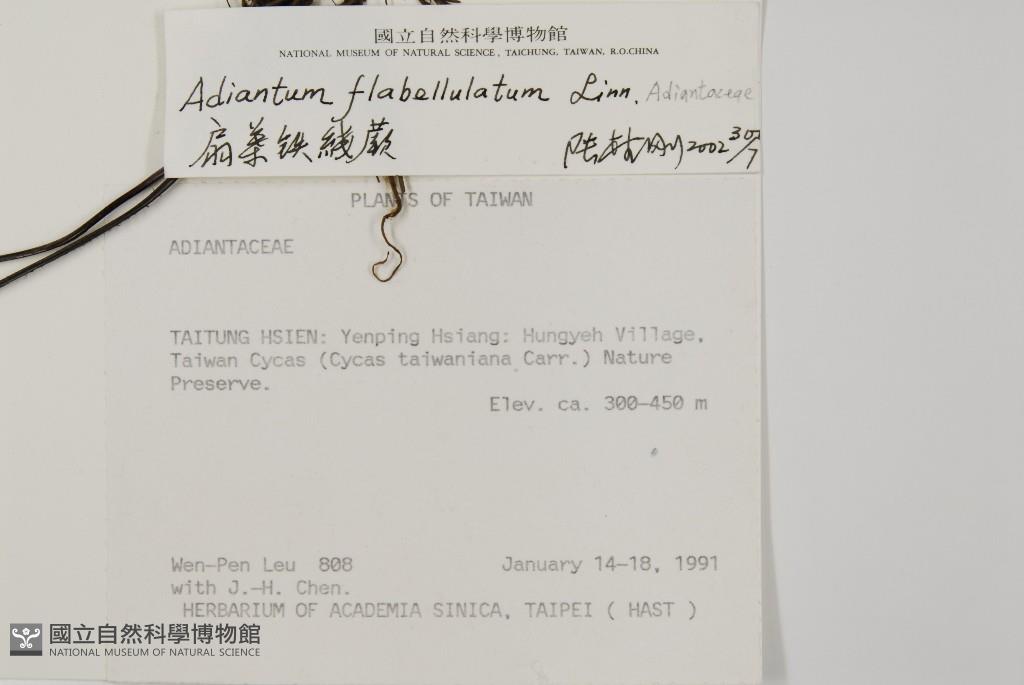 國立自然科學博物館
NATIONAL MUSEUM OF NATURAL SCIENCE, TAICHUNG, TAIWAN, R.O.CHINA
Adiantum flabellulatum Linn. Adiantaceae
扇葉铁綫蕨 陆树刚 2002
PLANTS OF TAIWAN
ADIANTACEAE
TAITUNG HSIEN: Yenping Hsiang: Hungyeh Village,
Taiwan Cycas (Cycas taiwaniana Carr.) Nature
Preserve.
Elev. ca. 300-450 m
Wen-Pen Leu 808 January 14-18, 1991
with J.-H. Chen.
HERBARIUM OF ACADEMIA SINICA, TAIPEI ( HAST )
國立自然科學博物館
NATIONAL MUSEUM OF NATURAL SCIENCE